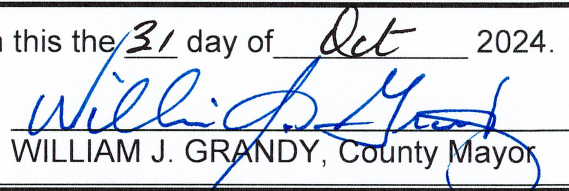 this the 31 day of Oct 2024.
William J. Grandy
WILLIAM J. GRANDY, County Mayor